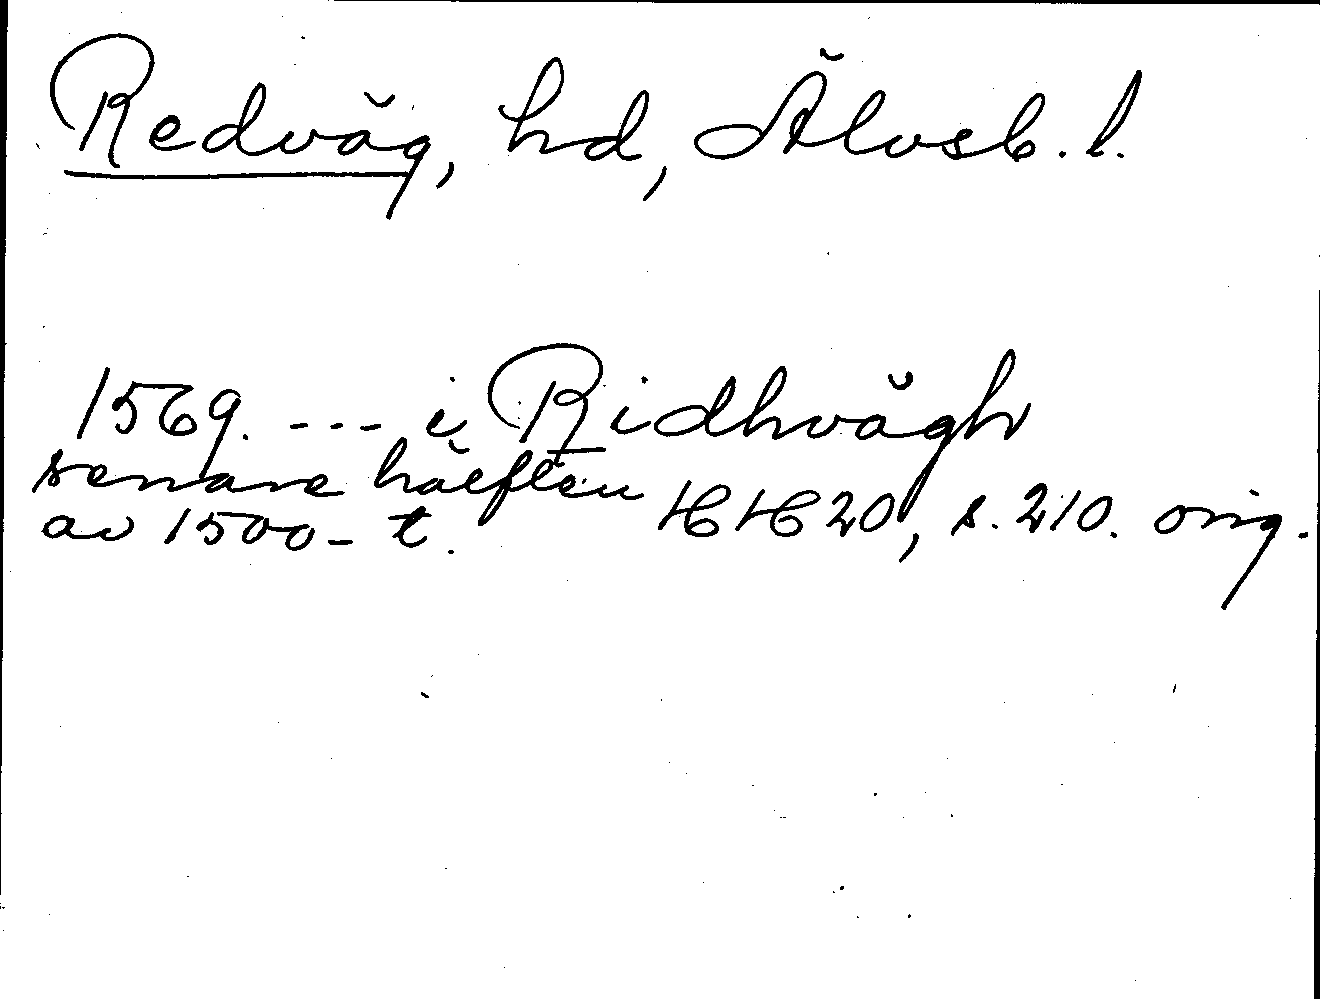 Redväg, hd, Älvsb. l.
1569. --- i Ridhvägh
senare hälften
av 1500-t. HH 20, s. 210. orig.